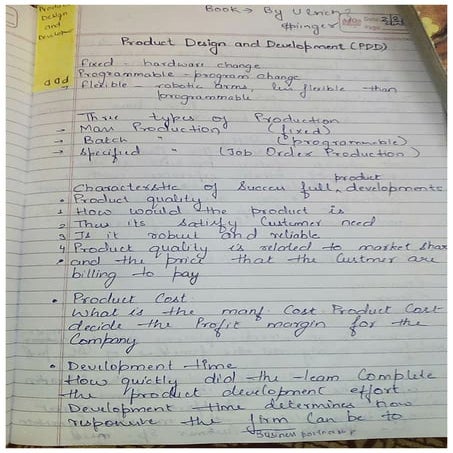 Product
Design
and
Development
Book → By Ulrich
Product Design and Development (PDD)
fixed - hardware change
Programmable - program change
add
flexible - robotic arms, less flexible than
programmable
Three types of Production
→ Mass Production (fixed)
→ Batch " (programmable)
→ specified " (Job Order Production)
product
Characterstic of Succeu full developments
• Product quality
1 How would the product is
2 Thus its satisfy Customer need
3 Is it robust and reliable
4 Product quality is related to market share
• and the price that the Custmer are
billing to pay
• Product Cost
What is the manf Cost. Product Cost
decide the Profit margin for the
Company
• Development time
How quickly did the team Complete
the product development effort.
Development time determines how
responsive the firm Can be to
Business partnership